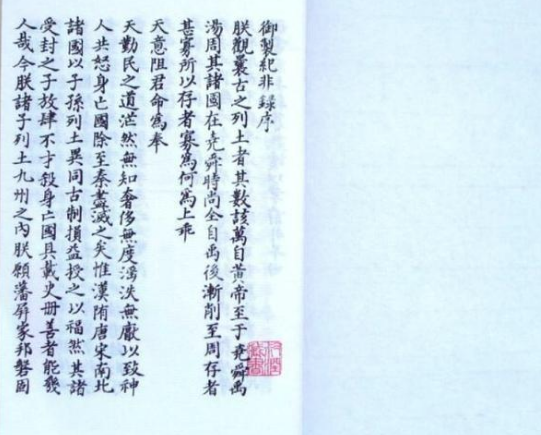 御製紀非錄序
朕觀曩古之列土者其數該萬自黃帝至于堯舜禹
湯周其諸國在堯舜時尚全自禹後漸削至周存者
甚寡所以存者寡為何為上乖
天意阻君命為奉
天勤民之道茫然無知奢侈無度湯泆無厭以致神
人共怒身亡國除至秦盡滅之矣惟漢隋唐宋南北
諸國以子孫列土異同古制損益授之以福然其諸
受封之子放肆不才殺身亡國具載史冊善者能幾
人哉今朕諸子列土九州之內朕願藩屏家邦磐固